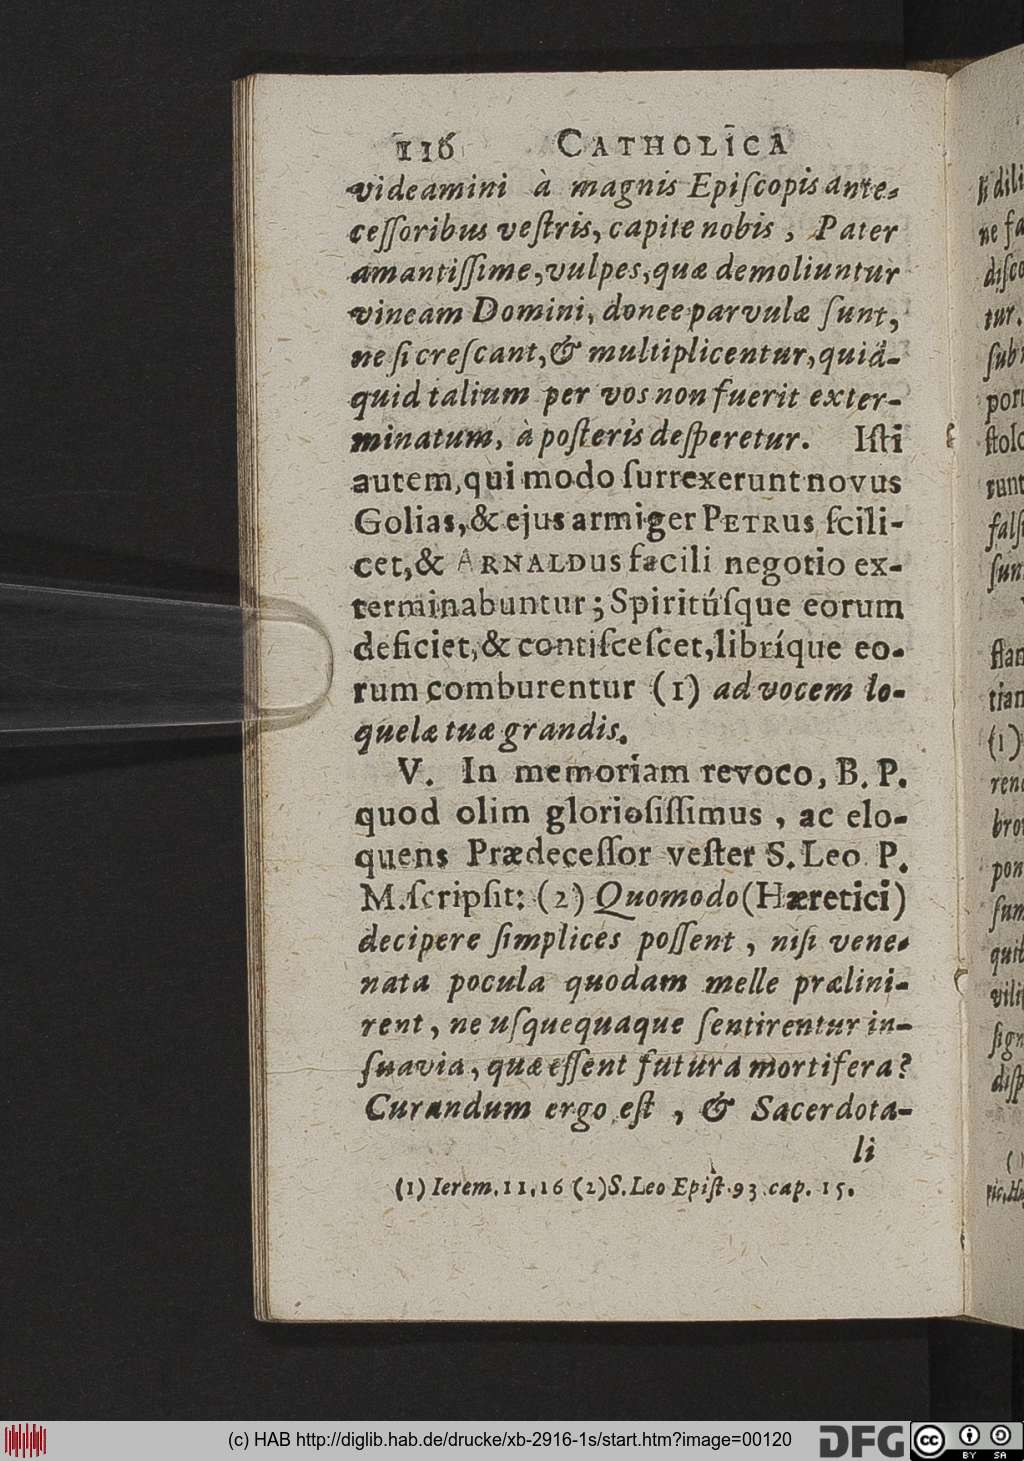 116 CATHOLICA
videamini à magnis Epiſcopis ante-
ceſſoribus veſtris, capite nobis, Pater
amantiſſime, vulpes, quæ demoliuntur
vineam Domini, donee parvulæ ſunt,
ne ſi creſcant, & multiplicentur, quid-
quid talium per vos non fuerit exter-
minatum, à poſteris deſperetur. Iſti
autem, qui modo ſurrexerunt novus
Golias, & ejus armiger PETRus ſcili-
cet, & ARNALDus facili negotio ex-
terminabuntur; Spiritúſque eorum
deficiet, & contiſceſcet, libríque eo-
rum comburentur (1) ad vocem lo-
quelæ tuæ grandis.
V. In memoriam revoco, B. P.
quod olim glorioſiſſimus, ac elo-
quens Prædeceſſor veſter S. Leo P.
M. ſcripſit: (2) Quomodo (Hæretici)
decipere ſimplices poſſent, niſi vene-
nata pocula quodam melle prælini-
rent, ne uſquequaque ſentirentur in-
ſuavia, quæ eſſent futura mortifera?
Curandum ergo eſt, & Sacerdota-
li
(1) Ierem. 11. 16 (2) S. Leo Epiſt. 93. cap. 15.
(c) HAB http://diglib.hab.de/drucke/xb-2916-1s/start.htm?image=00120
DFG
cc BY SA